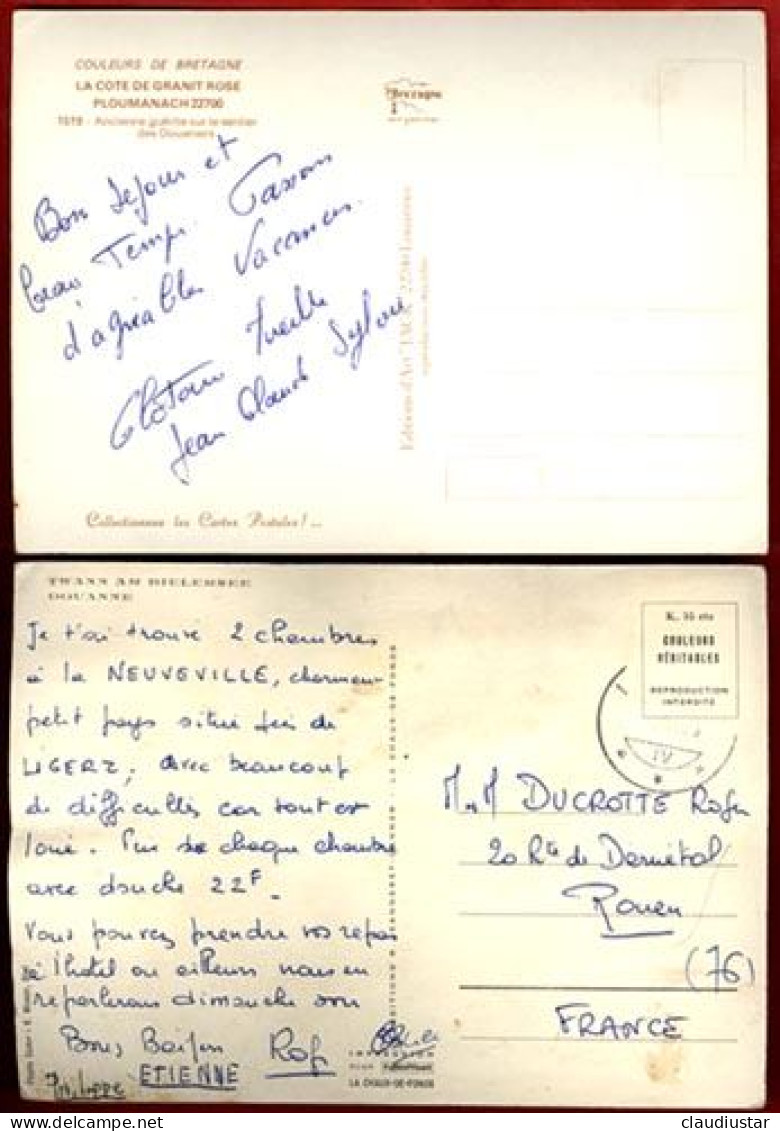 COULEURS DE BRETAGNE
LA COTE DE GRANIT ROSE
PLOUMANACH 22700
Ancienne guérite sur le sentier
des Douaniers
Bretagne
Bon Sejour et
beau Temps. Passons
d'agréables Vacances.
Jean Claude Sylvie
Collectionnez les Cartes Postales !...
TWANN AM BIELERSEE
DOUANNE
Je t'ai trouvé 2 chambres
à la NEUVEVILLE, charmant
petit pays situé près de
LIGERZ, avec beaucoup
de difficultés car tout est
loué. Prix de chaque chambre
avec douche 22F.
Vous pouvez prendre vos repas
à l'hotel ou ailleurs nous en
reparlerons dimanche soir
Bons Baisers
ETIENNE
Philippe
IMPRESSION
LA CHAUX-DE-FONDS
K. 35 cts
COULEURS
VÉRITABLES
REPRODUCTION
INTERDITE
IV
M. M DUCROTTE Roger
20 Rte de Darnétal
Rouen
(76)
FRANCE
claudiustar